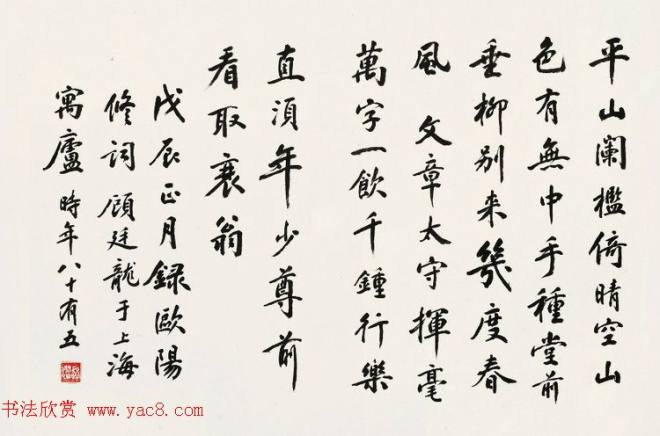 平山闌檻倚晴空山
色有無中手種堂前
垂柳别来幾度春
風 文章太守揮毫
萬字一飲千鍾行樂
直須年少尊前
看取衰翁
戊辰正月録歐陽
修詞 顧廷龍于上海
寓廬 時年八十有五
书法欣赏 www.yac8.com